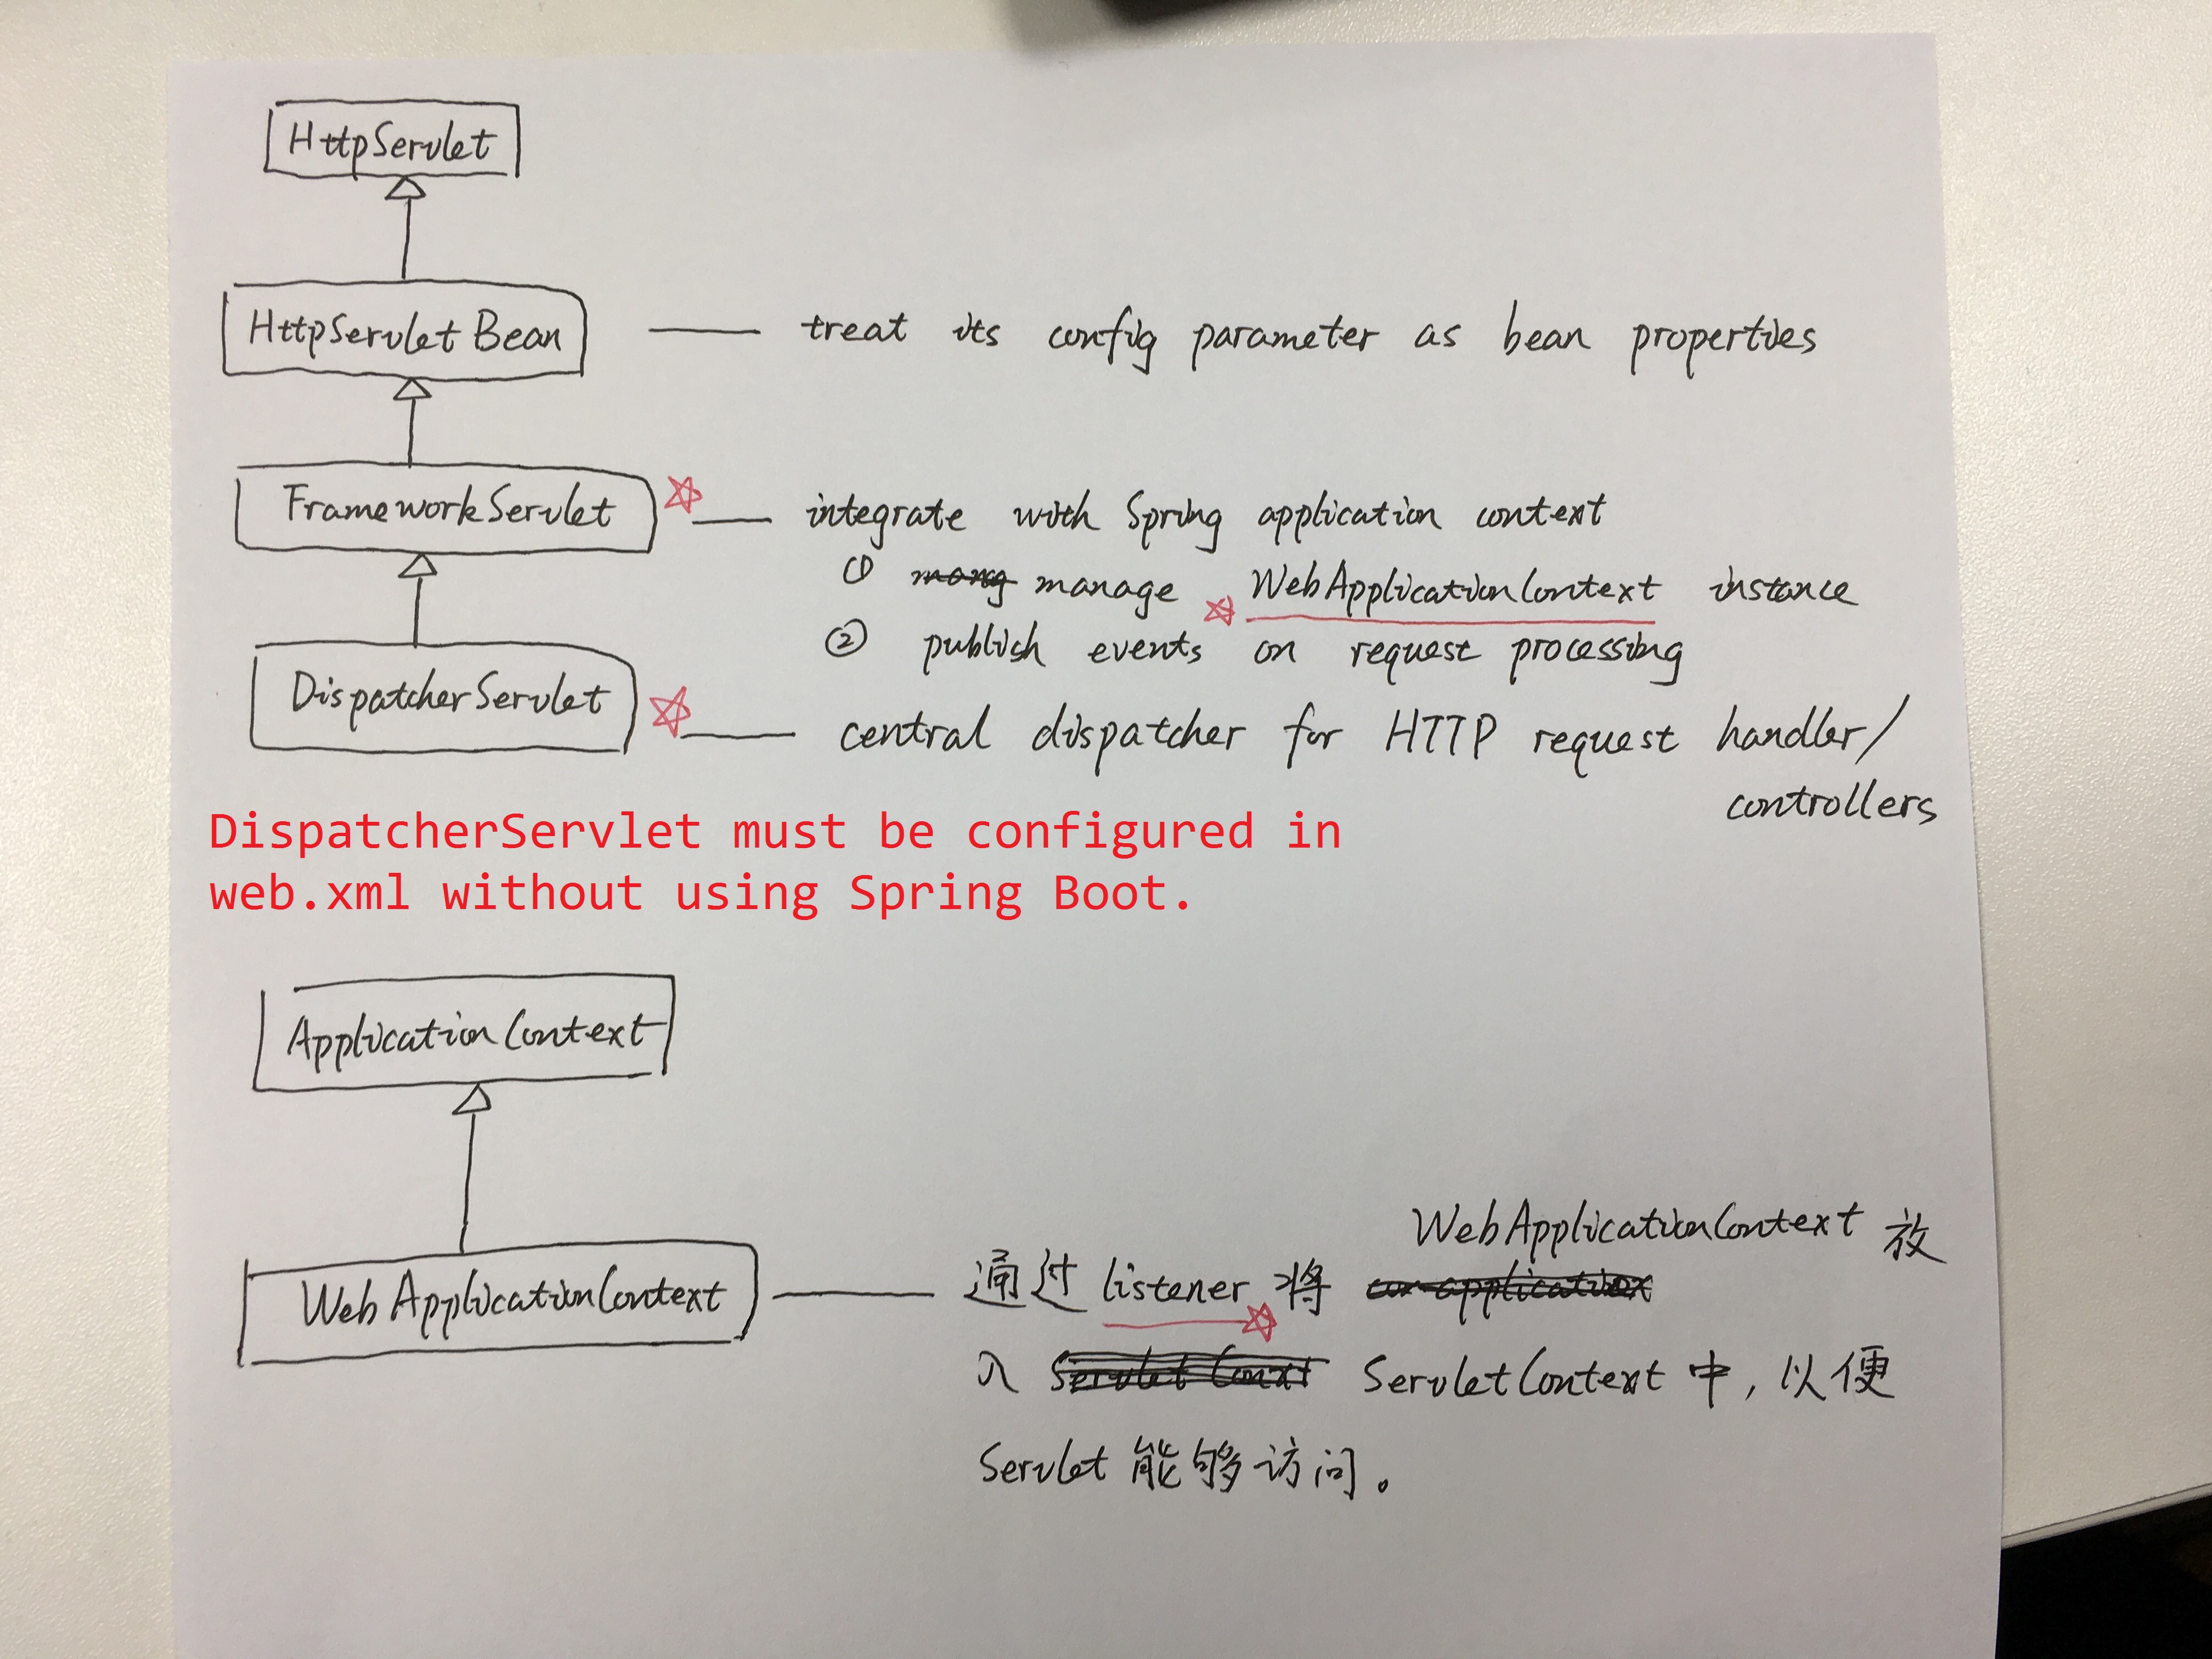 HttpServlet
HttpServlet Bean —— treat its config parameter as bean properties
FrameworkServlet —— integrate with Spring application context
① manage WebApplicationContext instance
② publish events on request processing
DispatcherServlet —— central dispatcher for HTTP request handler/
controllers
DispatcherServlet must be configured in
web.xml without using Spring Boot.
ApplicationContext
WebApplicationContext 放
WebApplicationContext —— 通过 listener 将
入 ServletContext 中，以便
Servlet 能够访问。